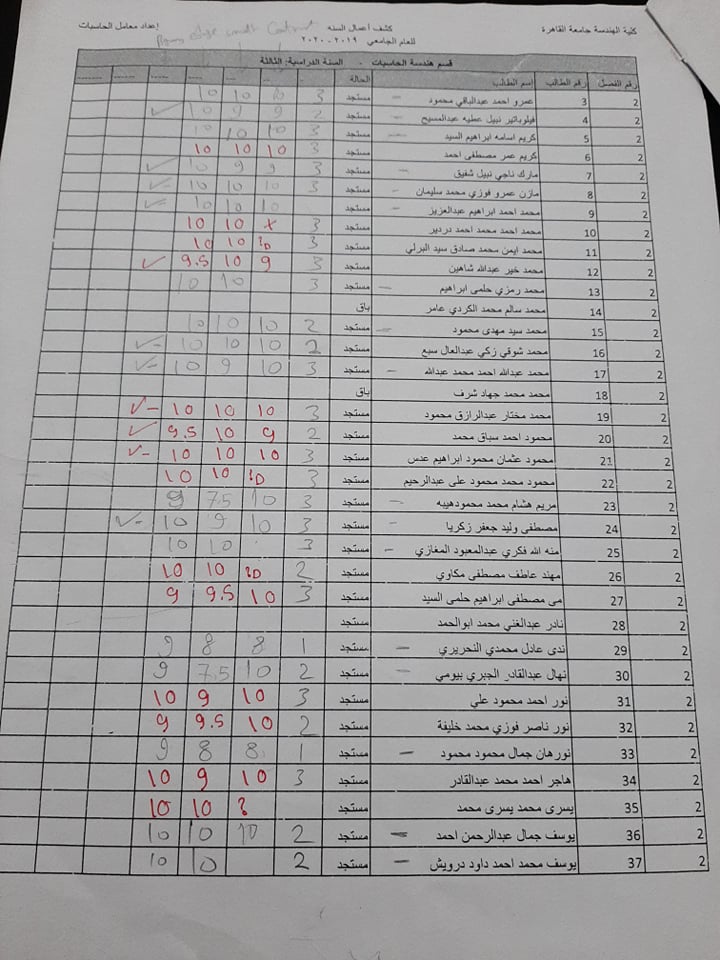 كلية الهندسة جامعة القاهرة كشف أعمال السنه إعداد معامل الحاسبات
للعام الجامعي ٢٠١٩ - ٢٠٢٠
قسم هندسة الحاسبات - السنة الدراسية: الثالثة
رقم الفصل رقم الطالب اسم الطالب الحالة
2 3 عمرو احمد عبدالباقي محمود – مستجد 3 10 10 10
2 4 فيلوباتير نبيل عطيه عبدالمسيح – مستجد 2 9 9 10 ✓
2 5 كريم اسامه ابراهيم السيد – مستجد 3 10 10 10
2 6 كريم عمر مصطفى احمد مستجد 3 10 10 10
2 7 مارك ناجي نبيل شفيق – مستجد 3 9 9 10 ✓
2 8 مازن عمرو فوزي محمد سليمان – مستجد 3 10 10 10 ✓
2 9 محمد احمد ابراهيم عبدالعزيز – مستجد 10 10 10 ✓
2 10 محمد احمد محمد احمد دردير مستجد 3 x 10 10
2 11 محمد ايمن محمد صادق سيد البرلي مستجد 3 10 10
2 12 محمد خير عبدالله شاهين مستجد 3 9 10 9.5 ✓
2 13 محمد رمزي حلمى ابراهيم – مستجد 3 10 10
2 14 محمد سالم محمد الكردي عامر باق
2 15 محمد سيد مهدى محمود – مستجد 2 10 10 10
2 16 محمد شوقي زكي عبدالعال سبع مستجد 2 10 10 10 ✓-
2 17 محمد عبدالله احمد محمد عبدالله – مستجد 3 10 9 10 ✓-
2 18 محمد محمد جهاد شرف باق
2 19 محمد مختار عبدالرازق محمود مستجد 3 10 10 10 ✓-
2 20 محمود احمد سباق محمد مستجد 2 9 10 9.5 ✓
2 21 محمود عثمان محمود ابراهيم عدس مستجد 3 10 10 10 ✓-
2 22 محمود محمد محمود على عبدالرحيم مستجد 3 10 10
2 23 مريم هشام محمد محمودهيبه – مستجد 3 10 7.5 9
2 24 مصطفى وليد جعفر زكريا – مستجد 3 10 9 10 ✓-
2 25 منه الله فكري عبدالمعبود المغازي – مستجد 3 10 10
2 26 مهند عاطف مصطفى مكاوي مستجد 2 10 10
2 27 مى مصطفى ابراهيم حلمى السيد مستجد 3 10 9.5 9
2 28 نادر عبدالغني محمد ابوالحمد مستجد
2 29 ندى عادل محمدي النحريري – مستجد 1 8 8 9
2 30 نهال عبدالقادر الجبري بيومي – مستجد 2 10 7.5 9
2 31 نور احمد محمود علي مستجد 3 10 9 10
2 32 نور ناصر فوزي محمد خليفة مستجد 2 10 9.5 9
2 33 نورهان جمال محمود محمود – مستجد 1 8 8 9
2 34 هاجر احمد محمد عبدالقادر مستجد 3 10 9 10
2 35 يسرى محمد يسرى محمد مستجد ? 10 10
2 36 يوسف جمال عبدالرحمن احمد – مستجد 2 10 10 10
2 37 يوسف محمد احمد داود درويش – مستجد 2 10 10